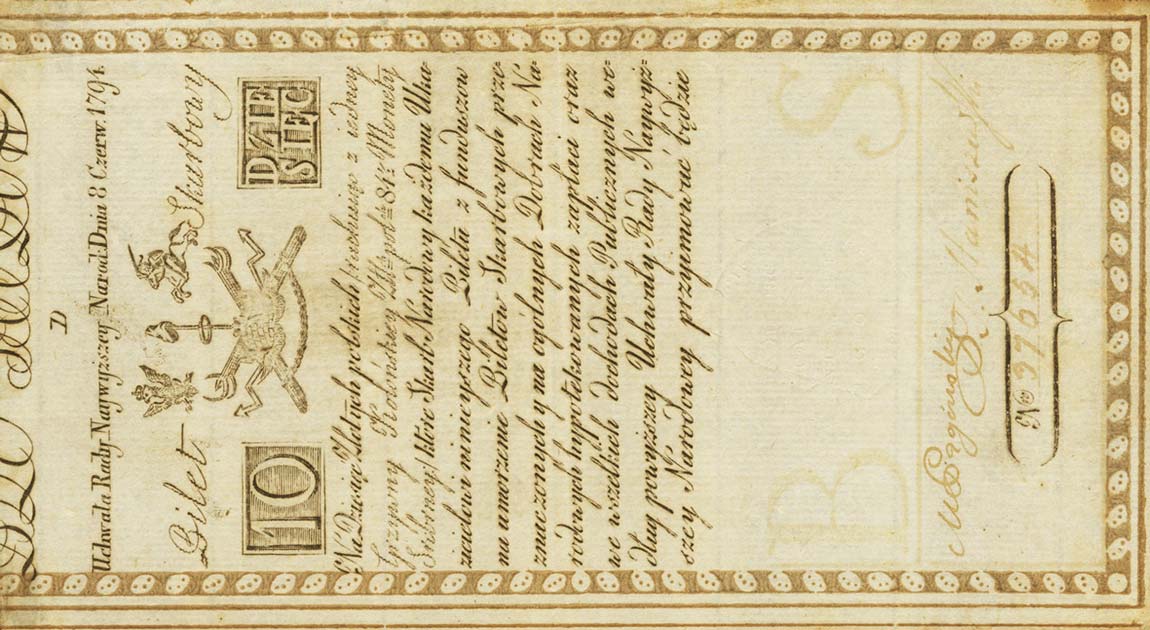 D
Uchwała Rady Naywyższey Narod: Dnia 8 Czerw. 1794.
Bilet Skarbowy
10
DZIE
SIĘC
Na Dziesięć Złotych polskich, rachuiąc z iedney
Grzywny Kolońskiey Monety
Srebrney, które Skarb Narodowy każdemu Uka-
zicielowi ninieyszego Biletu z funduszow
na umorzenie Biletow Skarbowych prze-
znaczonych y na ogólnych Dobrach Na-
rodowych hypotekowanych zapłaci oraz
we wszelkich dochodach Publicznych we-
dług powyższey Uchwały Rady Naywyż-
szey Narodowey przyimować będzie
B S
Nro 37634